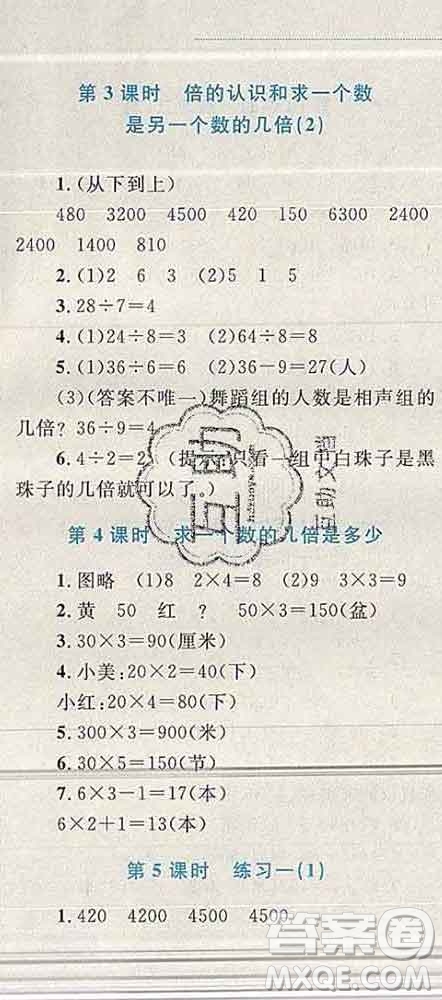 第3课时 倍的认识和求一个数
是另一个数的几倍(2)
1.(从下到上)
480 3200 4500 420 150 6300 2400
2400 1400 810
2.(1)2 6 3 (2)5 1 5
3.28÷7=4
4.(1)24÷8=3 (2)24÷3=8
5.(1)36÷6=6 (2)36-9=27(人)
(3)(答案不唯一)舞蹈组的人数是相声组的
几倍?36÷9=4
6.4÷2=2 (提 只看一组中白珠子是黑
珠子的几倍就可以了。)
第4课时 求一个数的几倍是多少
1.图略 (1)8 2×4=8 (2)9 3×3=9
2.黄 50 红 ? 50×3=150(盆)
3.30×3=90(厘米)
4.小美:20×2=40(下)
小红:20×4=80(下)
5.300×3=900(米)
6.30×5=150(节)
7.6×3-1=17(本)
6×2+1=13(本)
第5课时 练习一(1)
1.420 4200 4500 4500
互助
互助文档
答案圈
MXQE.COM